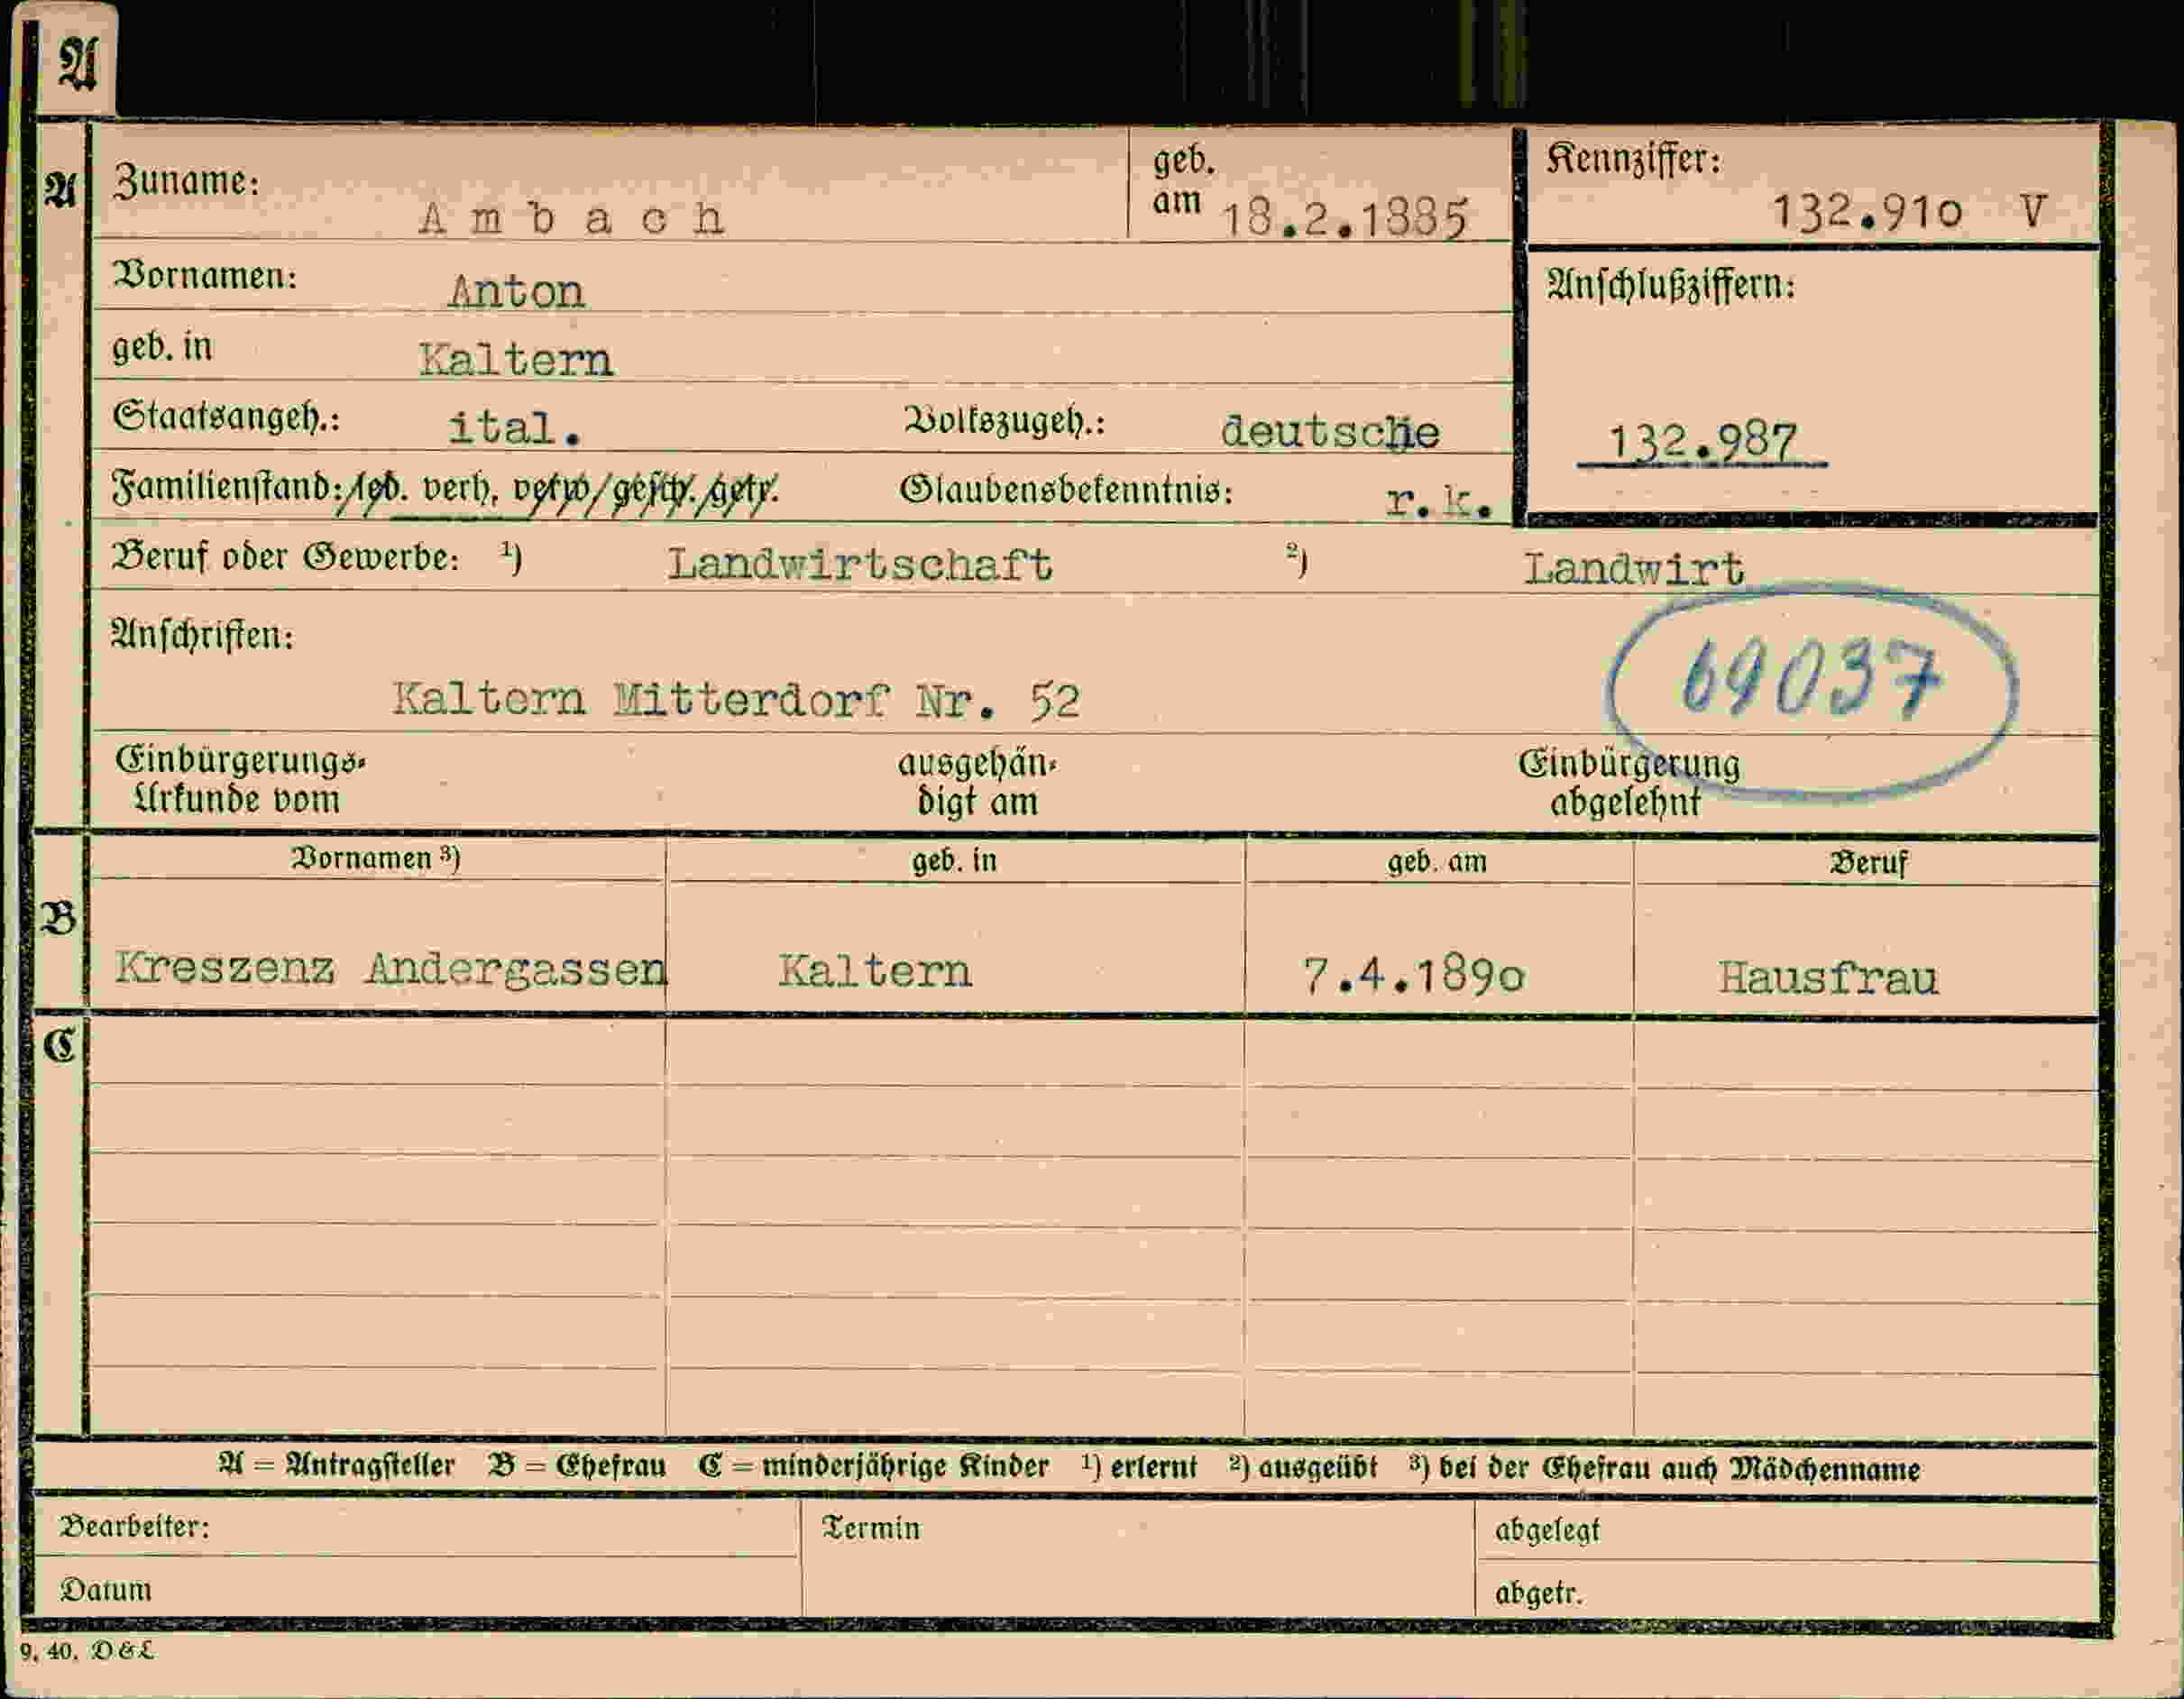 A
A
Zuname: Ambach geb. am 18.2.1885 Kennziffer: 132.910 V
Vornamen: Anton Anschlußziffern:
geb. in Kaltern
Staatsangeh.: ital. Volkszugeh.: deutsche 132.987
Familienstand: led. verh. verw. gesch. getr. Glaubensbekenntnis: r.k.
Beruf oder Gewerbe: ¹) Landwirtschaft ²) Landwirt
Anschriften:
69037
Kaltern Mitterdorf Nr. 52
Einbürgerungs- ausgehän- Einbürgerung
Urkunde vom digt am abgelehnt
Vornamen ³) geb. in geb. am Beruf
B
Kreszenz Andergassen Kaltern 7.4.1890 Hausfrau
C
A = Antragsteller B = Ehefrau C = minderjährige Kinder ¹) erlernt ²) ausgeübt ³) bei der Ehefrau auch Mädchenname
Bearbeiter: Termin abgelegt
Datum abgetr.
9. 40. D & L